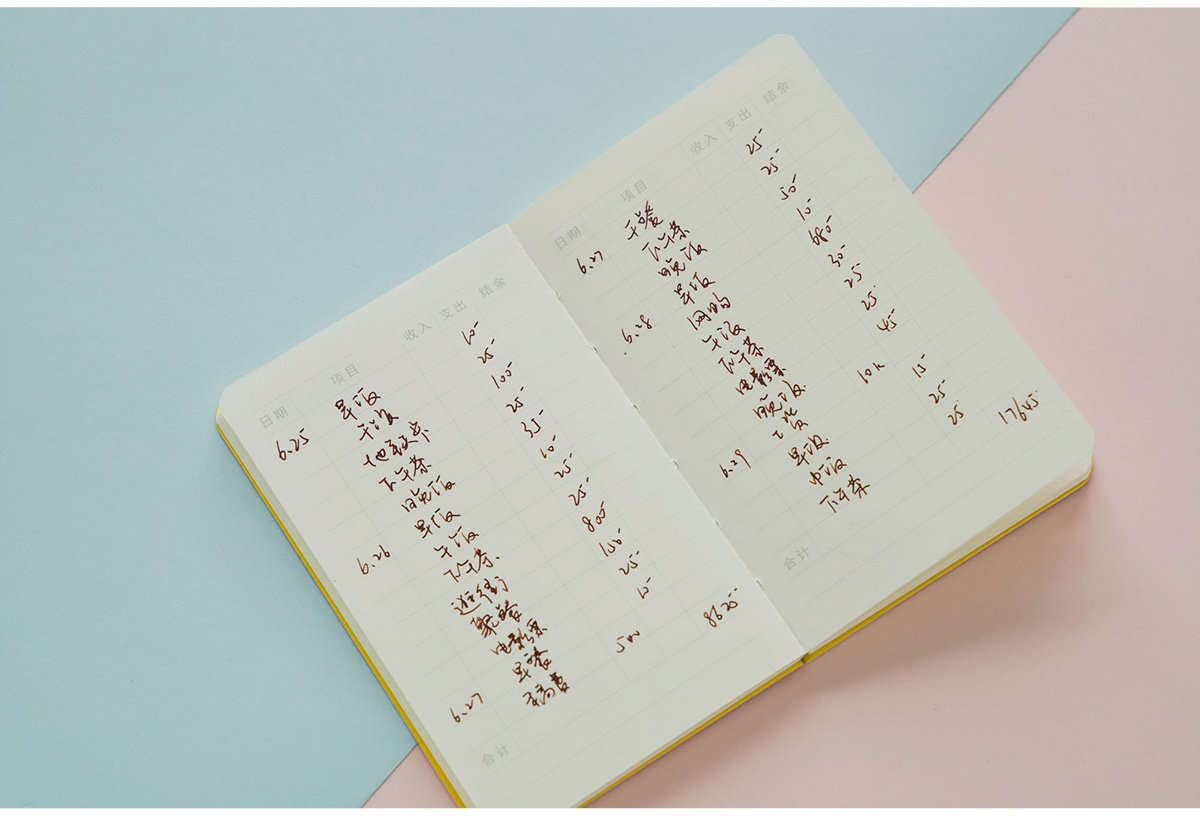 日期 项目 收入 支出 结余
6.25 早饭 10-
午饭 25-
地铁卡 100-
下午茶 25-
晚饭 35-
6.26 早饭 10-
午饭 25-
下午茶 25-
逛街 800-
聚餐 150-
电影票 25-
6.27 早餐 10-
稿费 500 8625-
合计
日期 项目 收入 支出 结余
6.27 午餐 25-
下午茶 25-
晚饭 50-
6.28 早饭 10-
网购 680-
午饭 30-
下午茶 25-
电影票 25-
晚饭 45-
工资 10k
6.29 早饭 15-
中饭 25-
下午茶 25- 17645-
合计